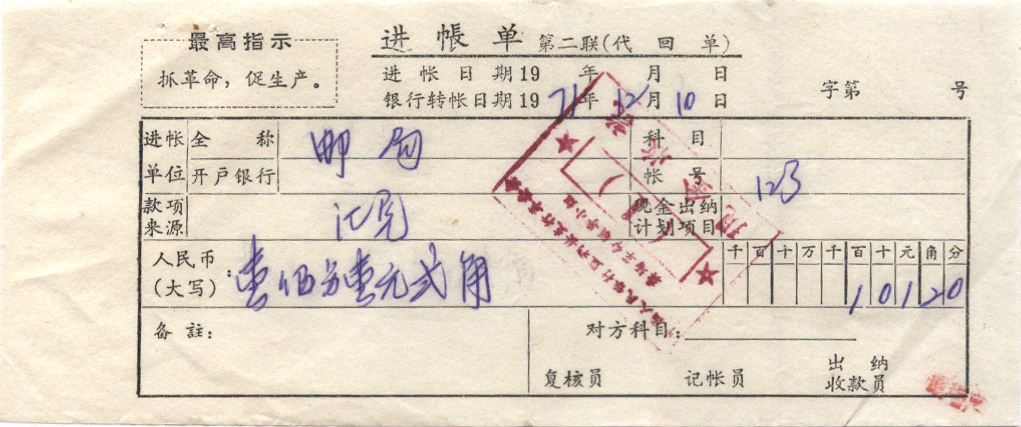 最高指示
抓革命，促生产。
进帐单 第二联(代回单)
进帐日期19 年 月 日
银行转帐日期1971年12月10日
字第 号
进帐单位 全称 邮局 科目
开户银行 帐号 123
款项来源 汇兑 现金出纳计划项目
千百十万千百十元角分
人民币(大写)：壹佰另壹元弍角 10120
备註：
对方科目：
复核员 记帐员 出纳收款员